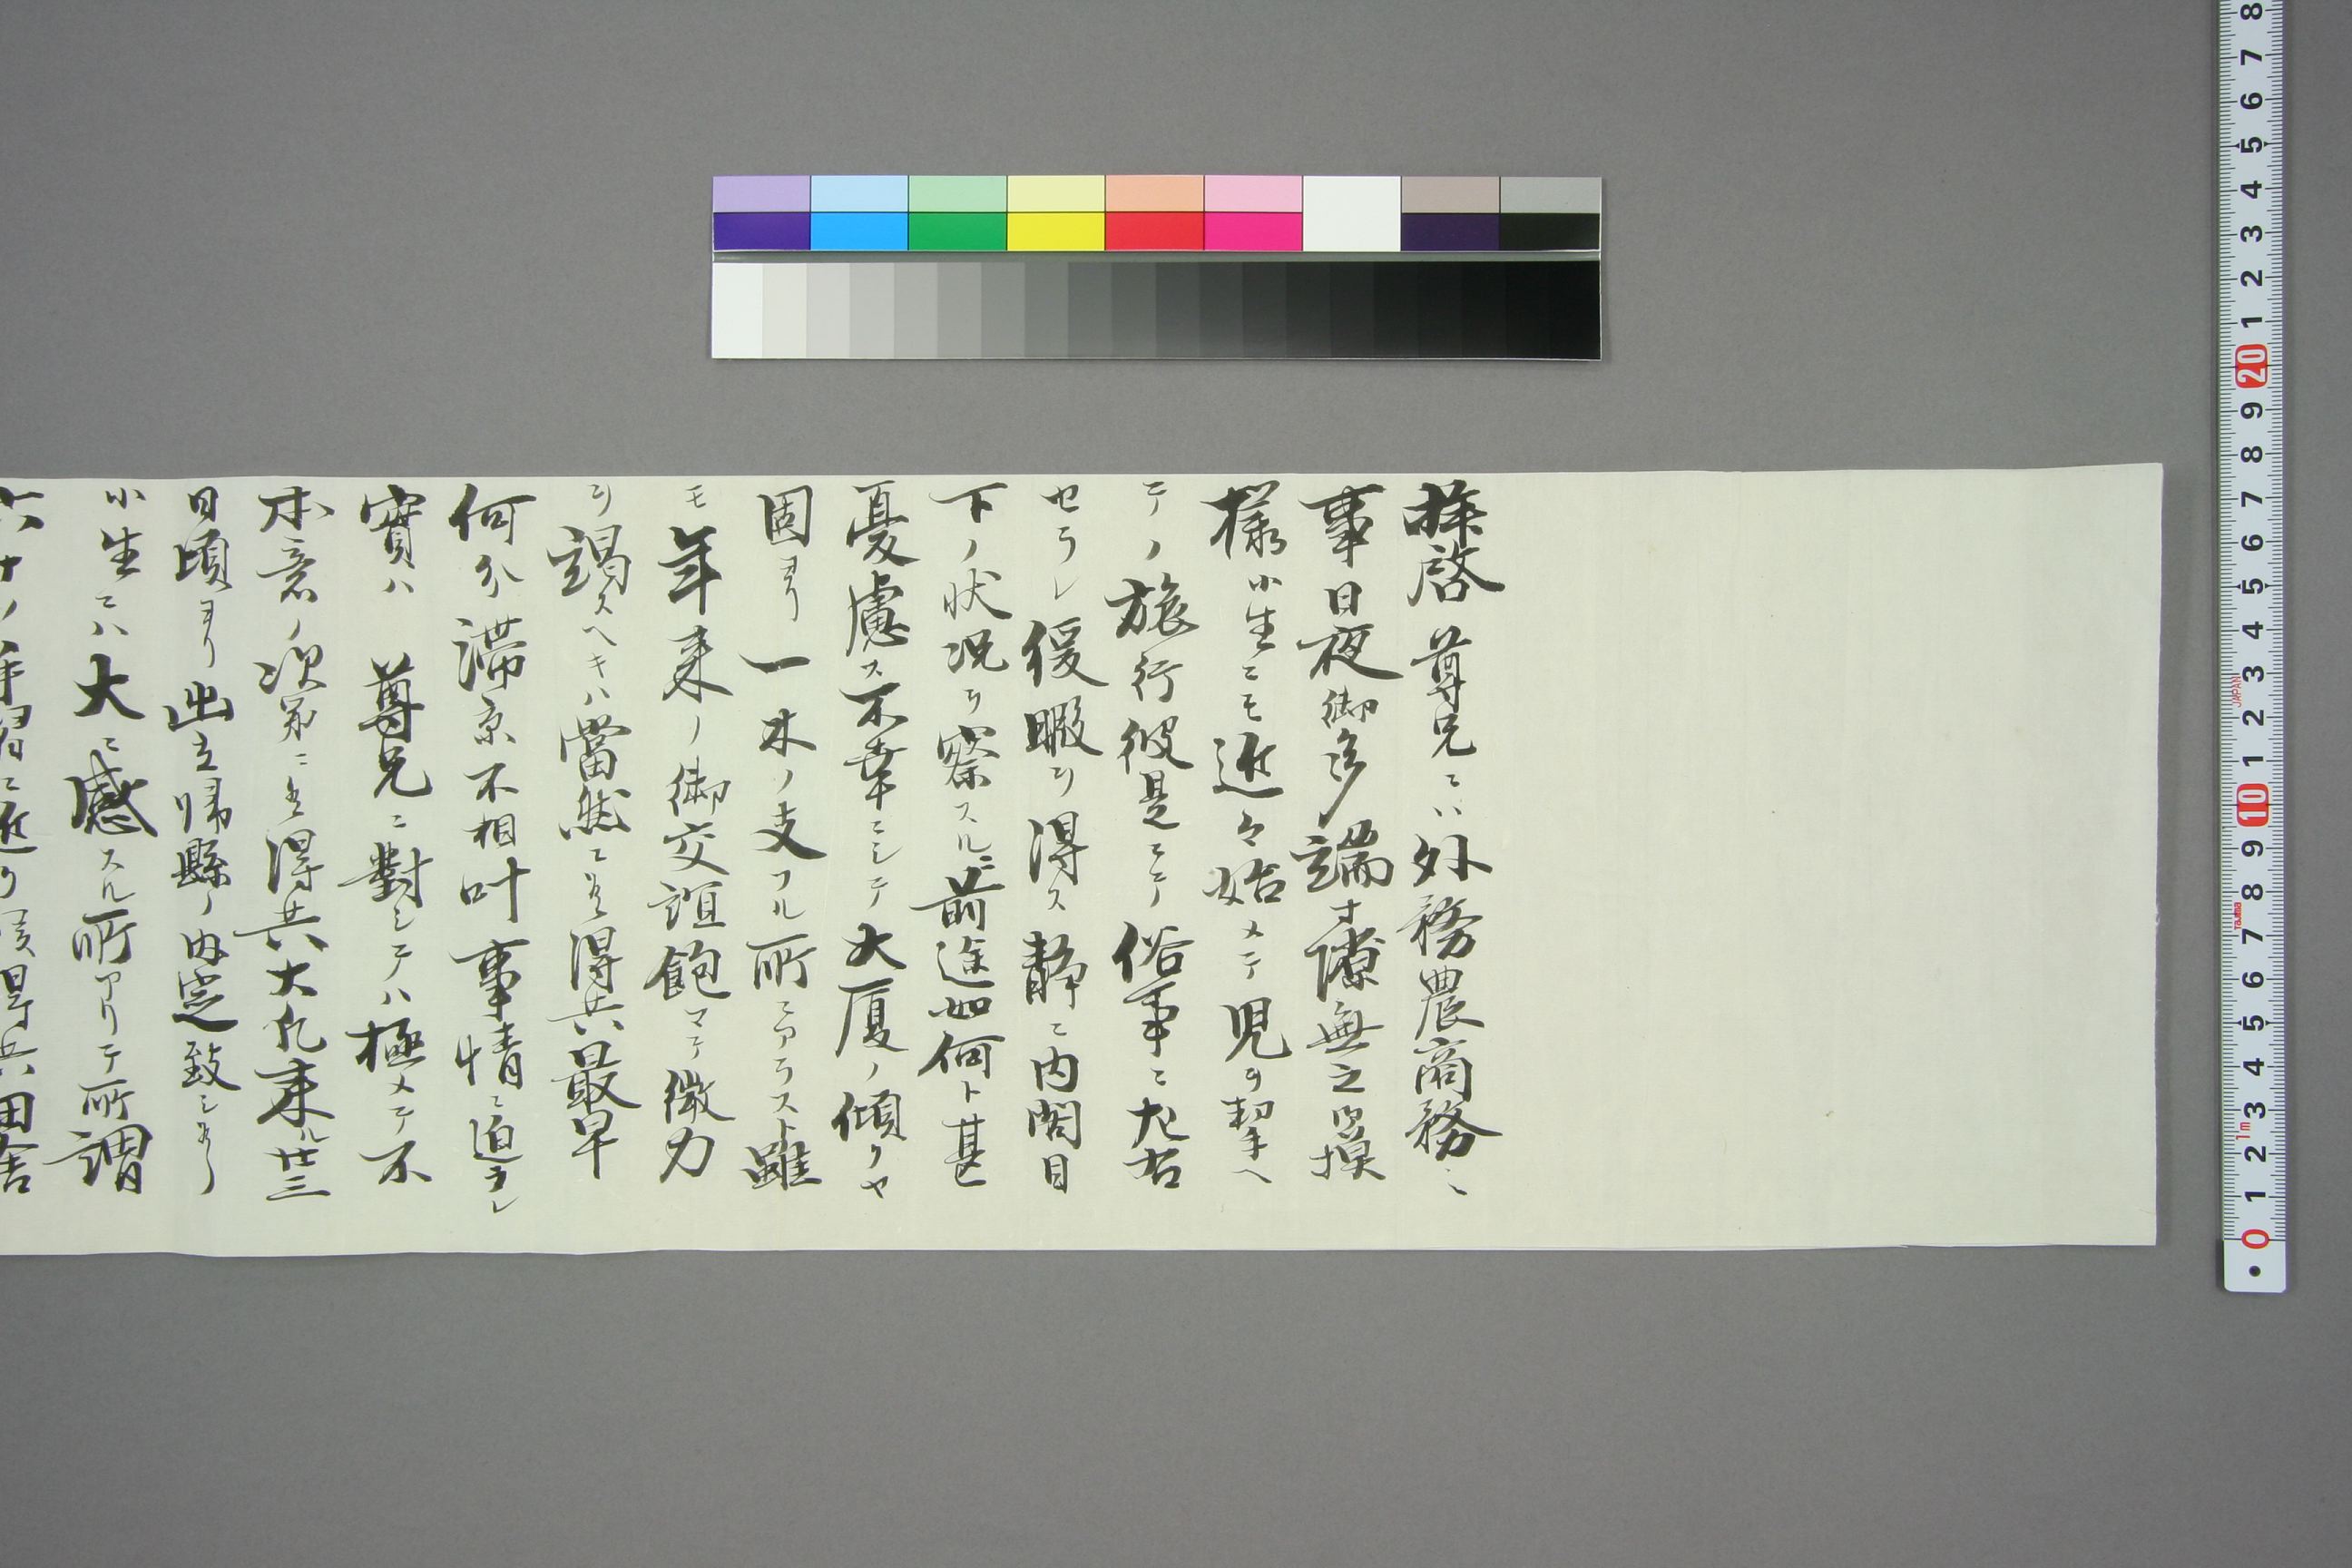 拝啓 尊兄ニハ外務農商務ニ
事日夜御多端寸隙無之御摸
様小生ニモ近々始メテ児ヲ挈ヘ
テノ旅行彼是ニテ俗事ニ左右
セラレ緩暇ヲ得ス静ニ内閣目
下ノ状況ヲ察スルニ前途如何ト甚
憂慮ス不幸ニシテ大厦ノ傾クヤ
固ヨリ一木ノ支フル所ニアラスト雖
モ年来ノ御交誼飽マテ微力
ヲ竭スヘキハ當然ニ候得共最早
何分滞京不相叶事情ニ迫ラレ
實ハ 尊兄ニ對シテハ極メテ不
本意ノ次第ニ候得共大凡来ル廿三
日頃ヨリ出立帰縣ノ内定致シ候
小生ニハ大ニ感スル所アリテ所謂
六十ノ手習ニ近ク候得共田舎
8 7 6 5 4 3 2 1 20 9 8 7 6 5 4 3 2 1 10 9 8 7 6 5 4 3 2 1 0
JAPAN
Tajima
1m